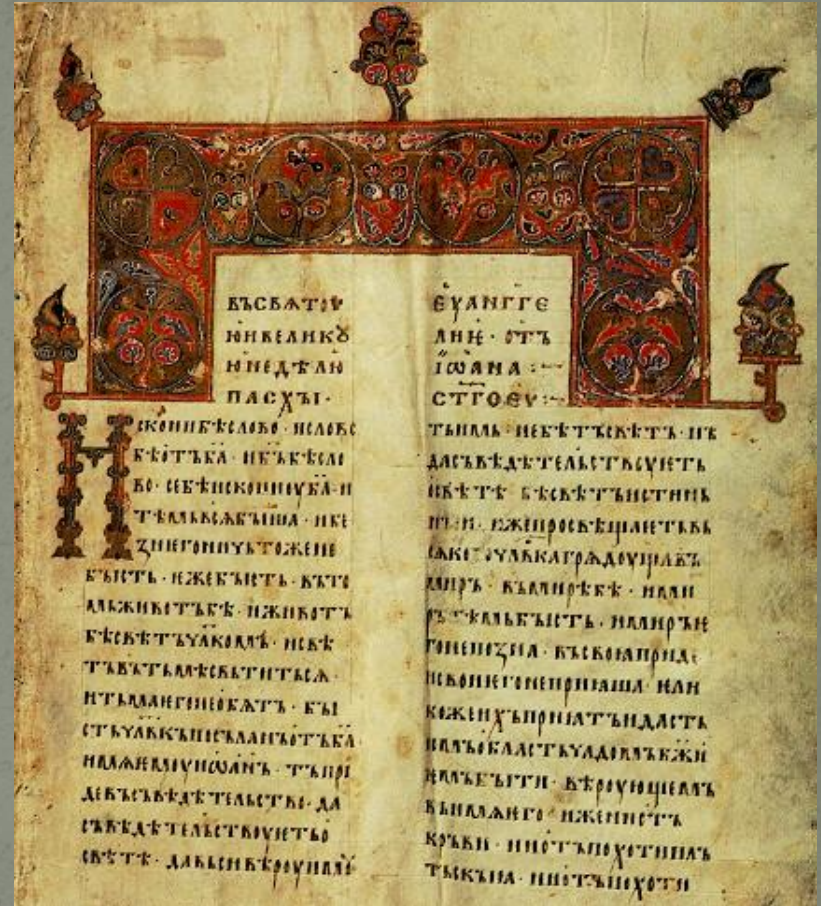 ВЪСВѦТОУ
ЮИВЕЛИКꙊ
ЮНЕДѢЛЮ
ПАСХЫ·
Искони бѣ слово· и слово
бѣотъба҃· и бъ҃ бѣсло
во· себѣисконоуба҃· и
тѣмьвьсѧбыша· ибе
ꙁнегоничьтожене
бысть· ежебысть· въто
мьживотъбѣ· иживотъ
бѣсвѣтъчл҃комъ· исвѣ
тъвътьмѣсвьтитьсѧ·
итьмаегонеобѧтъ· бы
стьчл҃вкъпосъланъотъба҃
имѧемоуиоанъ· тъпри
девъсъвѣдѣтельство· да
съвѣдѣтельствоуетьо
свѣтѣ· давьсивѣроуимоу
ЕУАНГГЕ
ЛИѤ· ОТЪ
ІѠАНА :~
СТ҃ГО ЕУ :~
тьимь· небѣтъсвѣтъ· нъ
дасъвѣдѣтельствоуѥть
освѣтѣ бѣсвѣтъистинь
нъи· ижепросвѣщаетьвь
сѧко чл҃вкагрѧдоущавъ
миръ· въмирѣбѣ· ими
ръ тѣмьбысть· имиръѥ
гонепоꙁна· въсвоꙗприде
исвоиегонеприꙗша· ели
кожеихъприꙗтъидасть
имъобластьчадомъбж҃и
емъбыти· вѣроующемъ
въимѧего· иженеотъ
кръви· ниотъпохотипль
тьскыꙗ· ниотъпохоти